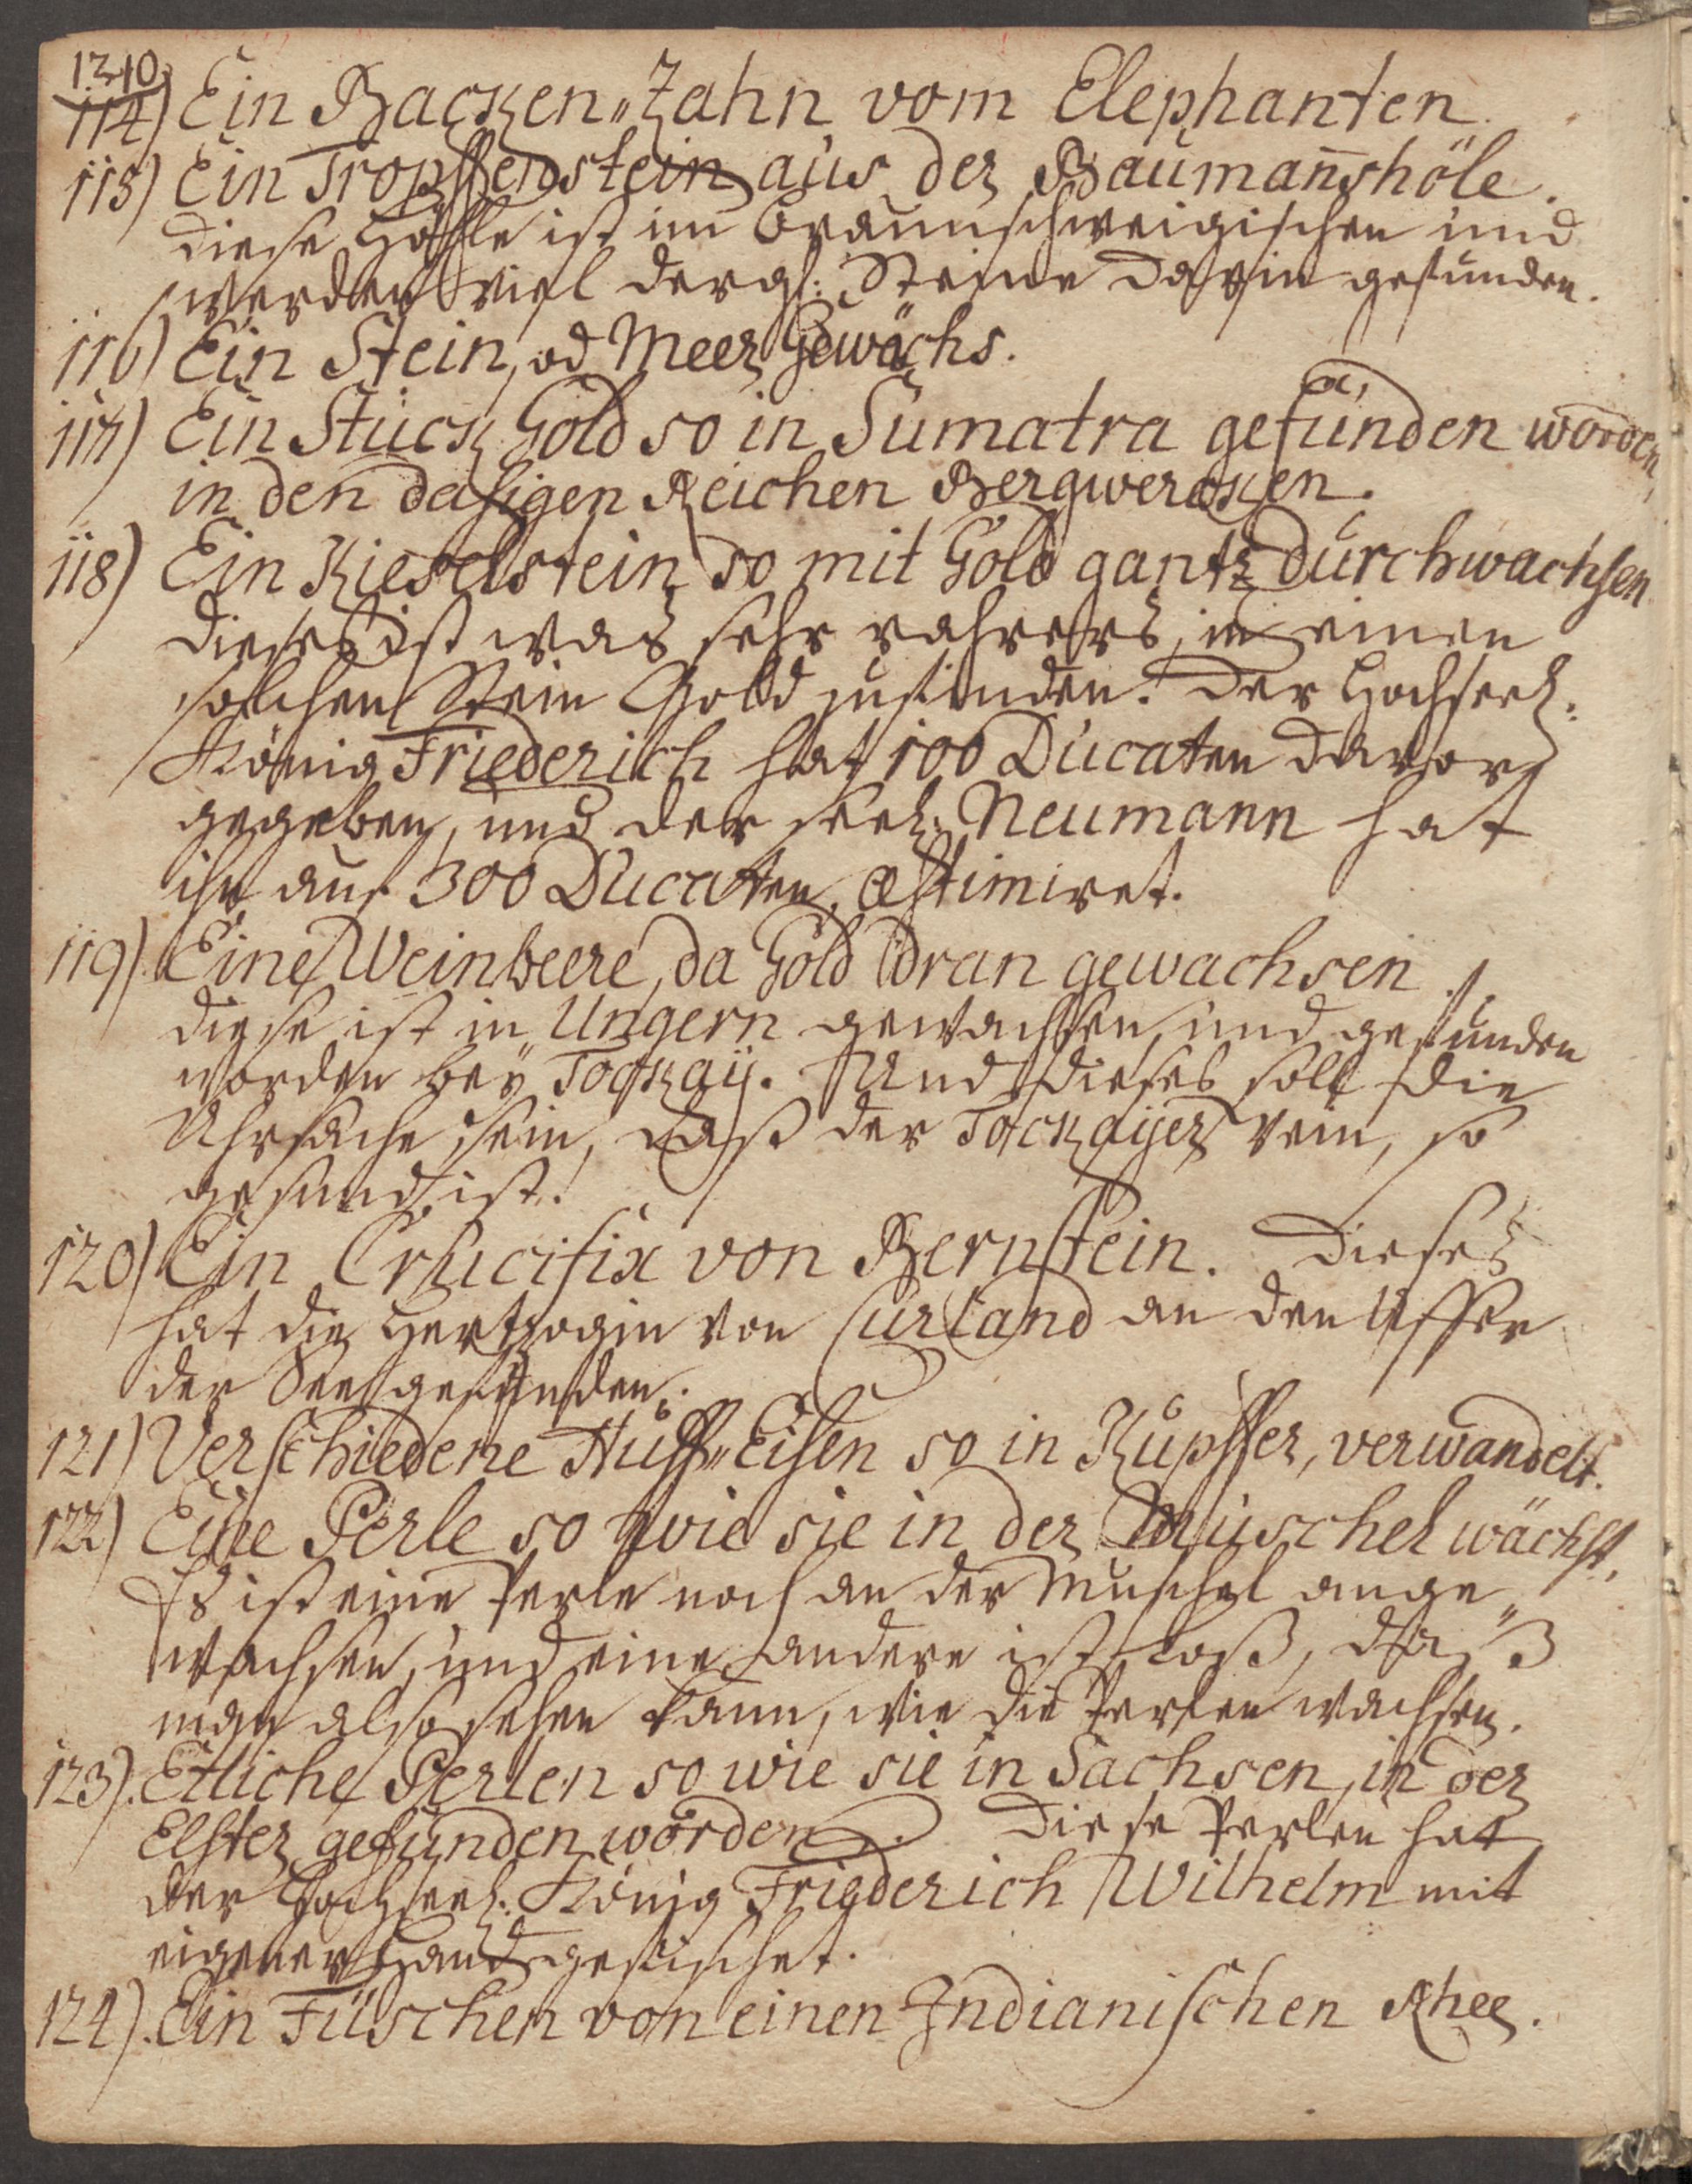 1340.
114) Ein Backen„Zahn vom Elephanten.
115) Ein Tropffenstein aus der Baumañshöle.
diese Höhle ist im Braunschweigischen und
werden viel dergl: Steine darin gefunden.
116) Ein Stein, od Meer Gewächs.
117) Ein Stück Gold so in Sumatra gefunden worden,
in den dasigen Reichen Bergwercken.
118) Ein Kieselstein so mit Gold gantz durchwachsen
dieses ist was sehr rahres, in einen
solchen Stein Gold zufinden. Der Hochseel:
König Friederich hat 100 Ducaten davor
gegeben, und der seel: Neumann hat
ihn auf 300 Ducaten, æstimiret.
119) Eine Weinbeere, da Gold dran gewachsen.
diese ist in Ungern gewachsen, und gefunden
worden bey Tockaÿ. Und dieses soll die
Uhrsache sein, daß der Tockaÿer Wein, so
gesund ist.
120) Ein Crucifix von Bernstein. Dieses
hat die Hertzogin von Curland an den Uffer
der See gefunden.
121) Verschiedene Huff„Eisen so in Kupffer, verwandelt.
122) Eine Perle so wie sie in der Muschel wächst,
Es ist eine Perle noch an der Muschel ange„
wachsen, und eine andere ist loß, daß
man also sehen kann, wie die Perlen wachsen.
123). Etliche Perlen so wie sie in Sachsen, in der
Elster gefunden worden. Diese Perlen hat
der Hochseel: König Friederich Wilhelm mit
eigener Hand gefischet.
124). Ein Füschen von einen Indianischen Rhee.